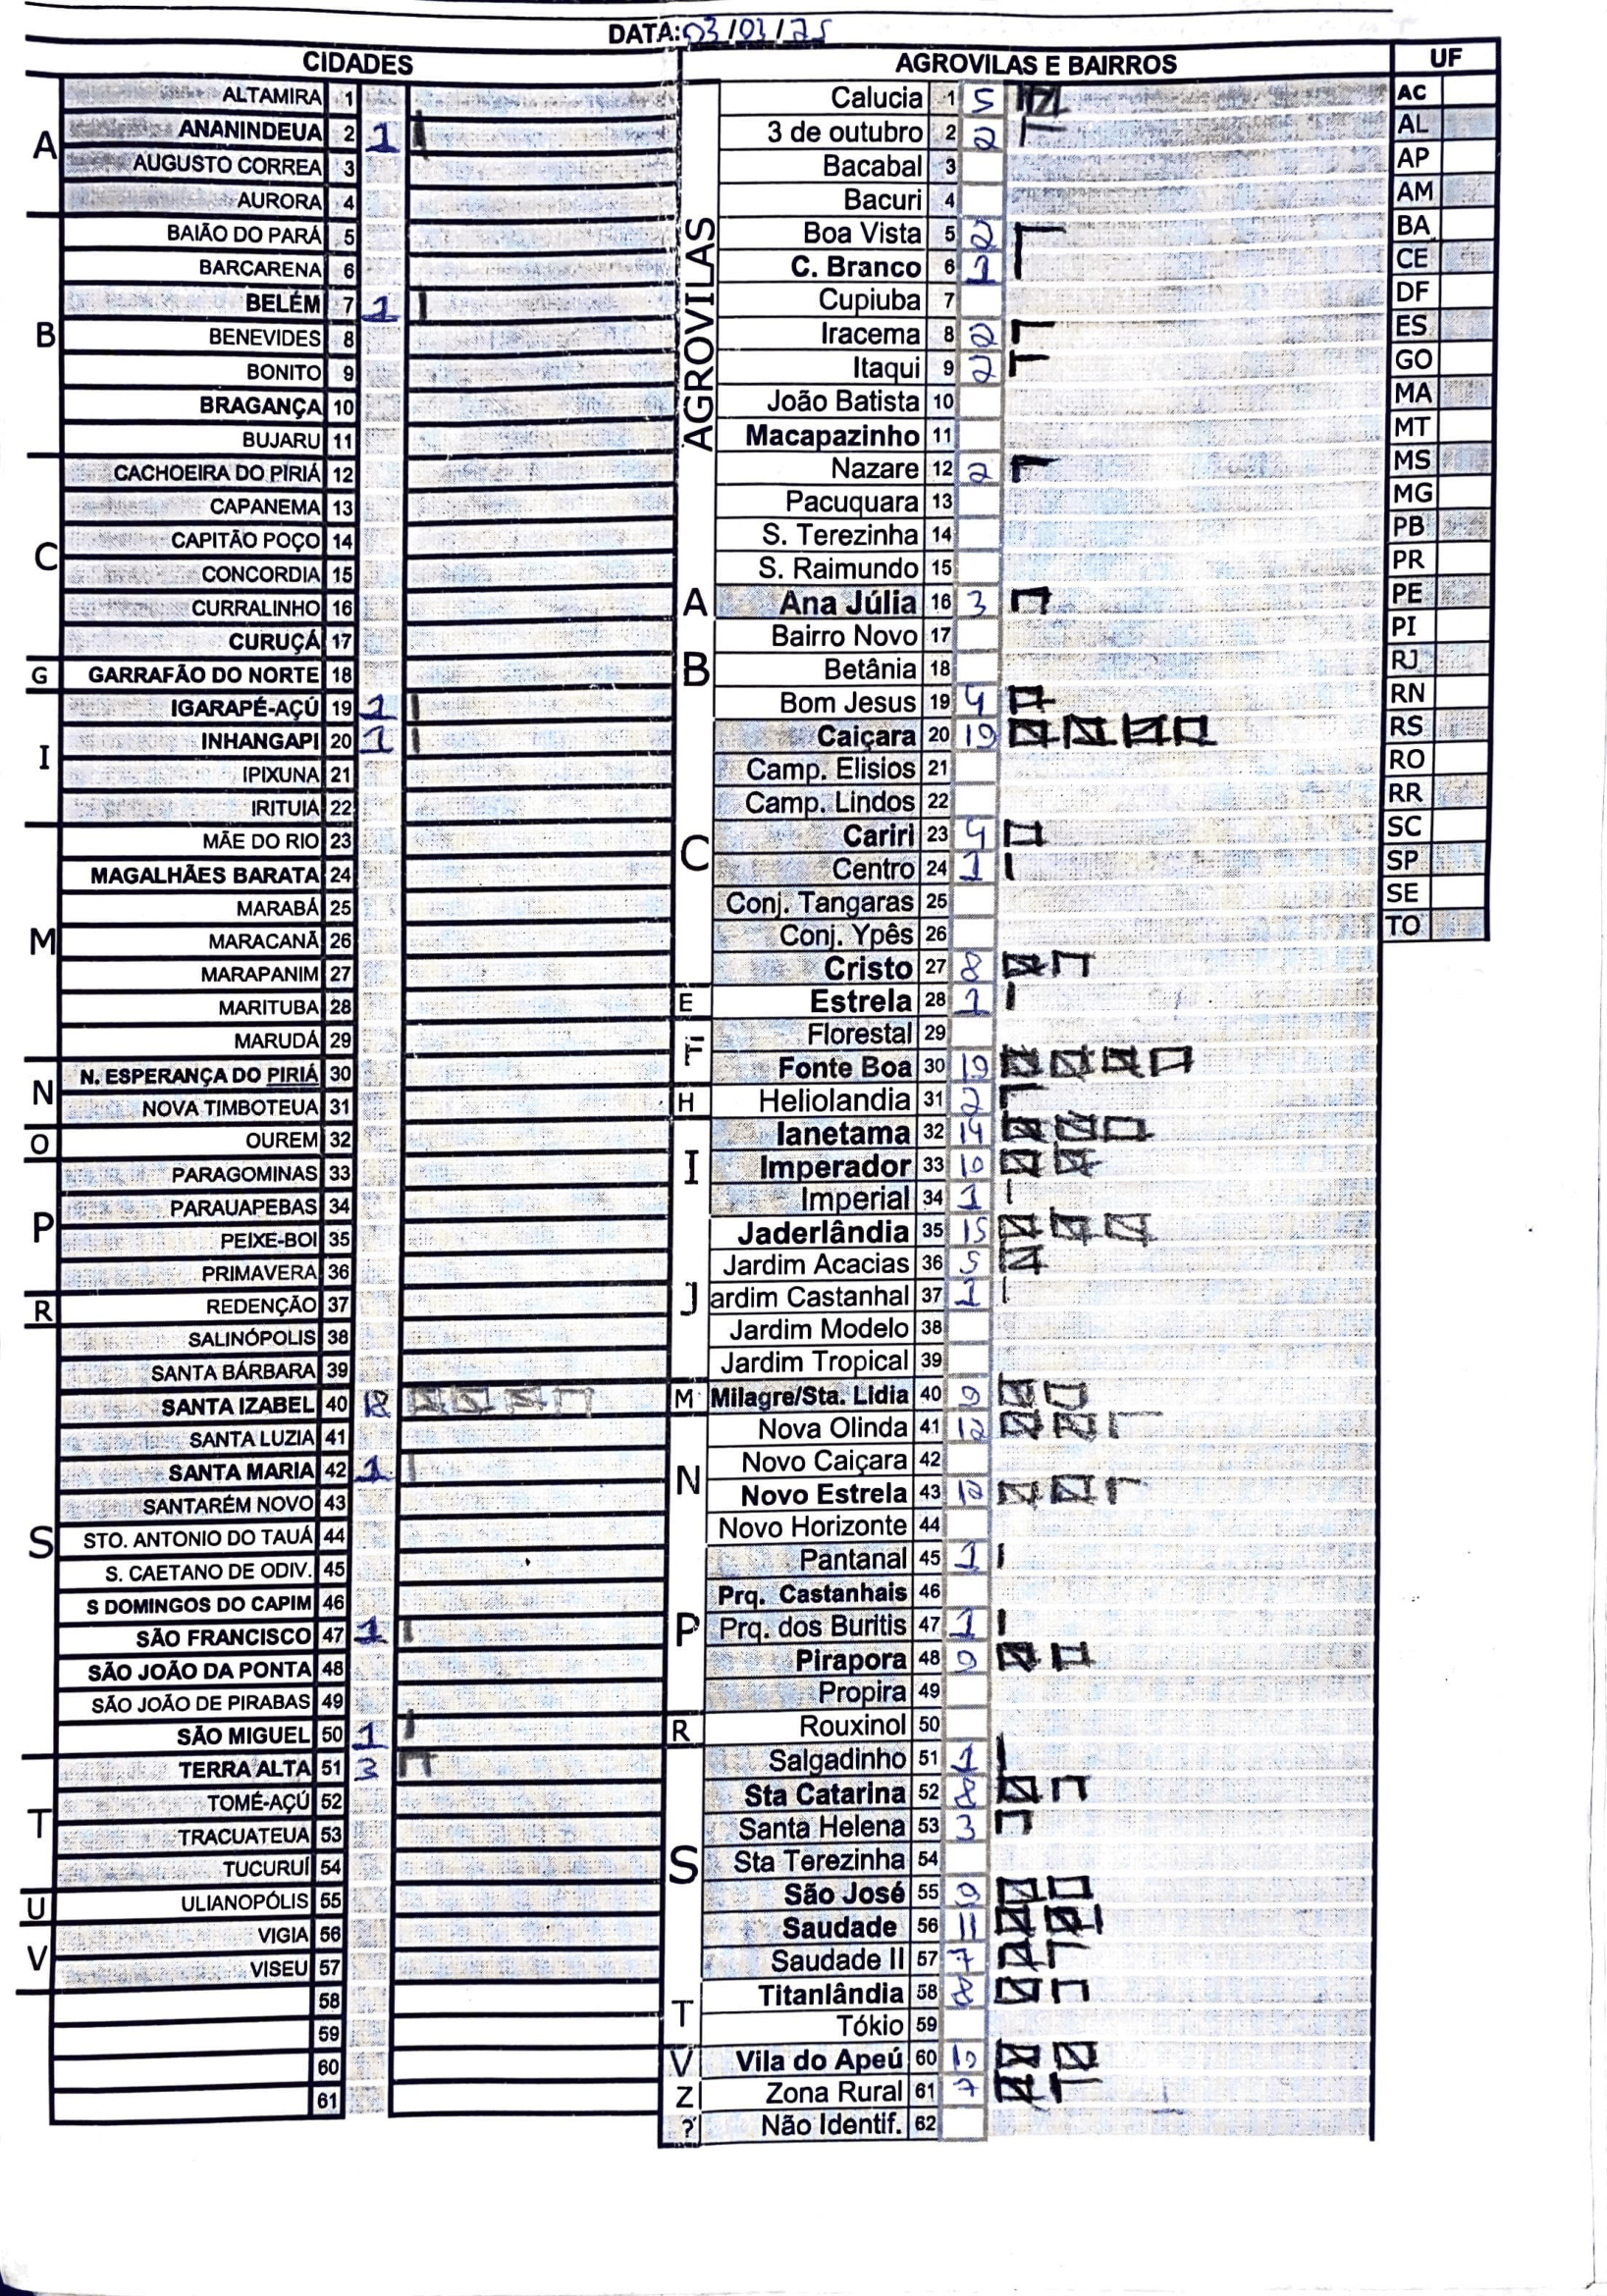 DATA: 03/01/25
CIDADES
A
ALTAMIRA 1
ANANINDEUA 2 1
AUGUSTO CORREA 3
AURORA 4
B
BAIÃO DO PARÁ 5
BARCARENA 6
BELÉM 7 1
BENEVIDES 8
BONITO 9
BRAGANÇA 10
BUJARU 11
C
CACHOEIRA DO PIRIÁ 12
CAPANEMA 13
CAPITÃO POÇO 14
CONCORDIA 15
CURRALINHO 16
CURUÇÁ 17
G
GARRAFÃO DO NORTE 18
I
IGARAPÉ-AÇÚ 19 1
INHANGAPI 20 1
IPIXUNA 21
IRITUIA 22
M
MÃE DO RIO 23
MAGALHÃES BARATA 24
MARABÁ 25
MARACANÃ 26
MARAPANIM 27
MARITUBA 28
MARUDÁ 29
N
N. ESPERANÇA DO PIRIÁ 30
NOVA TIMBOTEUA 31
O
OUREM 32
P
PARAGOMINAS 33
PARAUAPEBAS 34
PEIXE-BOI 35
PRIMAVERA 36
R
REDENÇÃO 37
S
SALINÓPOLIS 38
SANTA BÁRBARA 39
SANTA IZABEL 40 18
SANTA LUZIA 41
SANTA MARIA 42 1
SANTARÉM NOVO 43
STO. ANTONIO DO TAUÁ 44
S. CAETANO DE ODIV. 45
S DOMINGOS DO CAPIM 46
SÃO FRANCISCO 47 1
SÃO JOÃO DA PONTA 48
SÃO JOÃO DE PIRABAS 49
SÃO MIGUEL 50 1
T
TERRA ALTA 51 3
TOMÉ-AÇÚ 52
TRACUATEUA 53
TUCURUÍ 54
U
ULIANOPÓLIS 55
V
VIGIA 56
VISEU 57
58
59
60
61
AGROVILAS E BAIRROS
AGROVILAS
Calucia 1 5
3 de outubro 2 2
Bacabal 3
Bacuri 4
Boa Vista 5 2
C. Branco 6 1
Cupiuba 7
Iracema 8 2
Itaqui 9 2
João Batista 10
Macapazinho 11
Nazare 12 2
Pacuquara 13
S. Terezinha 14
S. Raimundo 15
A
Ana Júlia 16 3
B
Bairro Novo 17
Betânia 18
Bom Jesus 19 4
C
Caiçara 20 19
Camp. Elisios 21
Camp. Lindos 22
Cariri 23 4
Centro 24 1
Conj. Tangaras 25
Conj. Ypês 26
Cristo 27 8
E
Estrela 28 1
F
Florestal 29
Fonte Boa 30 19
H
Heliolandia 31 2
I
Ianetama 32 14
Imperador 33 10
Imperial 34 1
J
Jaderlândia 35 15
Jardim Acacias 36 5
ardim Castanhal 37 1
Jardim Modelo 38
Jardim Tropical 39
M
Milagre/Sta. Lidia 40 9
N
Nova Olinda 41 12
Novo Caiçara 42
Novo Estrela 43 12
Novo Horizonte 44
P
Pantanal 45 1
Prq. Castanhais 46
Prq. dos Buritis 47 1
Pirapora 48 9
Propira 49
R
Rouxinol 50
S
Salgadinho 51 1
Sta Catarina 52 8
Santa Helena 53 3
Sta Terezinha 54
São José 55 9
Saudade 56 11
Saudade II 57 7
T
Titanlândia 58 8
Tókio 59
V
Vila do Apeú 60 10
Z
Zona Rural 61 7
?
Não Identif. 62
UF
AC
AL
AP
AM
BA
CE
DF
ES
GO
MA
MT
MS
MG
PB
PR
PE
PI
RJ
RN
RS
RO
RR
SC
SP
SE
TO